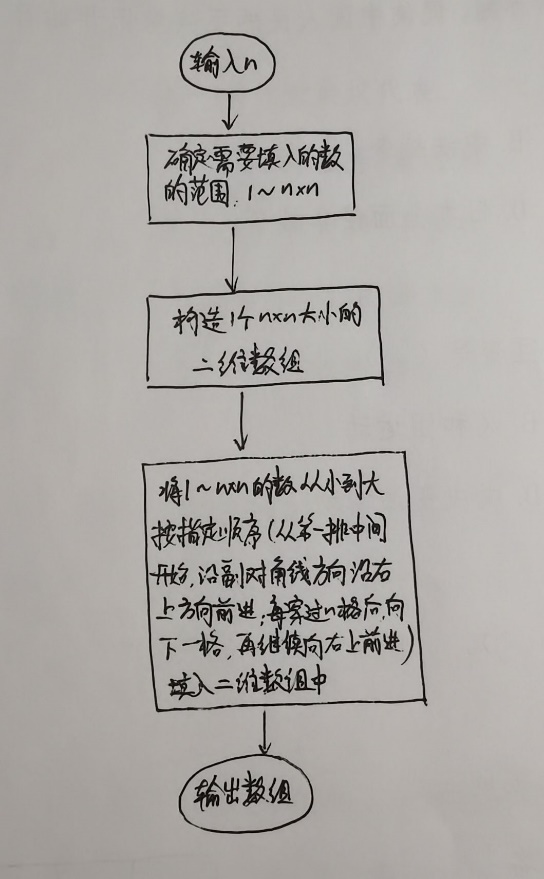 输入n
确定需要填入的数
的范围:1~n×n
构造1个n×n大小的
二维数组
将1~n×n的数从小到大
按指定顺序(从第一排中间
开始,沿副对角线方向沿右
上方向前进,每穿过n格后,向
下一格,再继续向右上前进)
填入二维数组中
输出数组